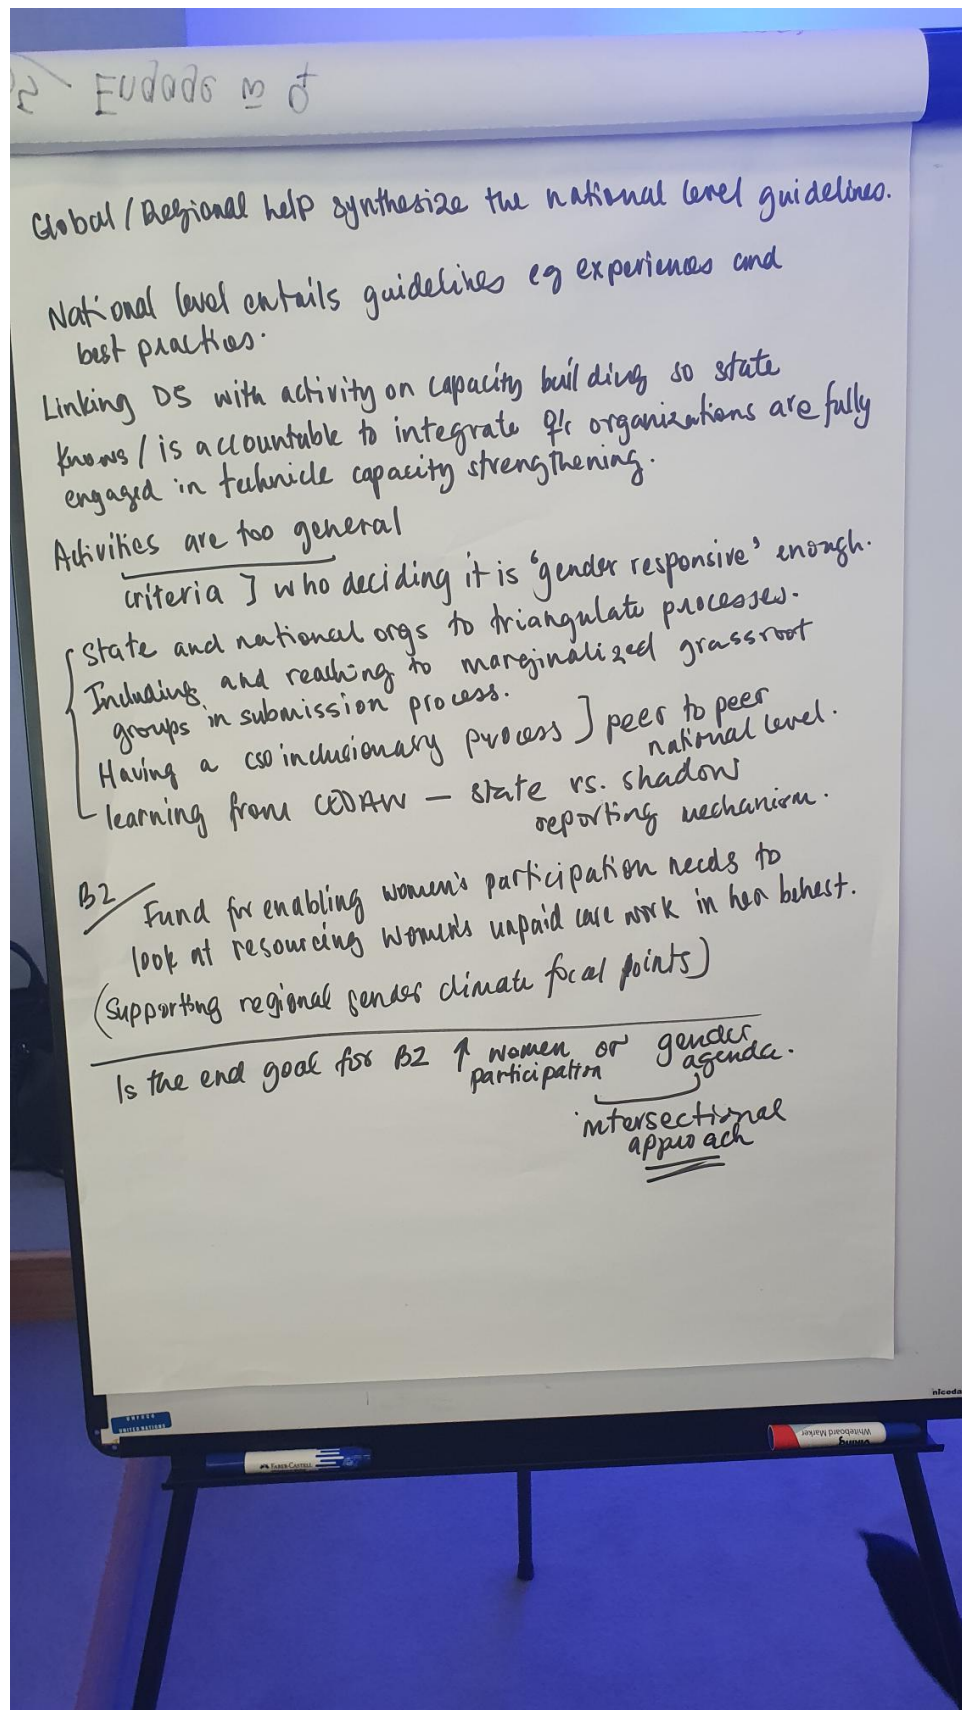 Engage
Global / Regional help synthesize the national level guidelines.
National level entails guidelines eg experiences and
best practices.
Linking D5 with activity on capacity building so state
knows / is accountable to integrate organizations are fully
engaged in technicle capacity strengthening.
Activities are too general
criteria ] who deciding it is 'gender responsive' enough.
State and national orgs to triangulate processes.
Including and reaching to marginalized grassroot
groups in submission process.
Having a cso inclusionary process ] peer to peer
national level.
learning from CEDAW – state vs. shadow
reporting mechanism.
B2
Fund for enabling women's participation needs to
look at resourcing women's unpaid care work in her behest.
(supporting regional gender climate focal points)
Is the end goal for B2 ↑ women or gender
participation agenda.
intersectional
approach
UNITED NATIONS
nicoda
FABER-CASTELL
viking
Whiteboard Marker